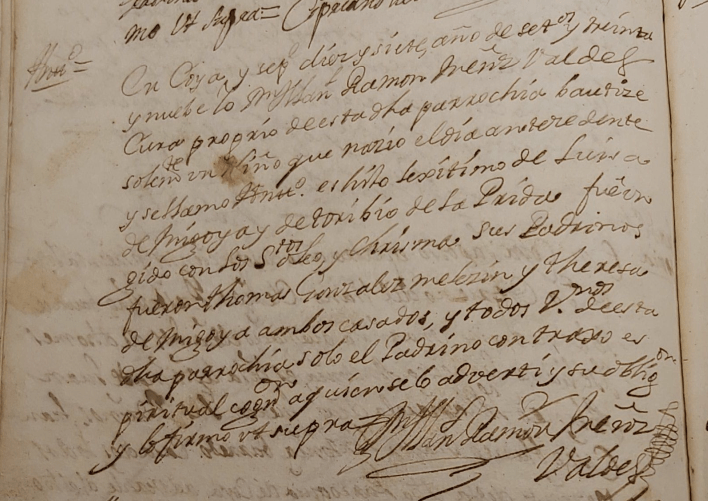 mo Ut supra=
Antt.º=
En Coya, y sepe diez y siete, año de setos y treinta
y nuebe Yo Dn Millan Ramon Ireñz Valdes
Cura proprio de esta dha parrochia bautize
solemte un Niño que nazio el dia antezedente
y se llamo Antt.º es hijo lexitimo de Luisa
de Migoya y de toribio de la Prida fue un
gido con los Stos oleo, y Chrisma sus Padrinos
fueron thomas Gonzalez melezin y theresa
de Migoya ambos casados, y todos Vnos de esta
dha parrochia solo el Padrino contraxo es
piritual cogn.on a quien se lo adverti y su oblig.on
y lo firmo ut supra=
Millan Ramon Ireñz
Valdes